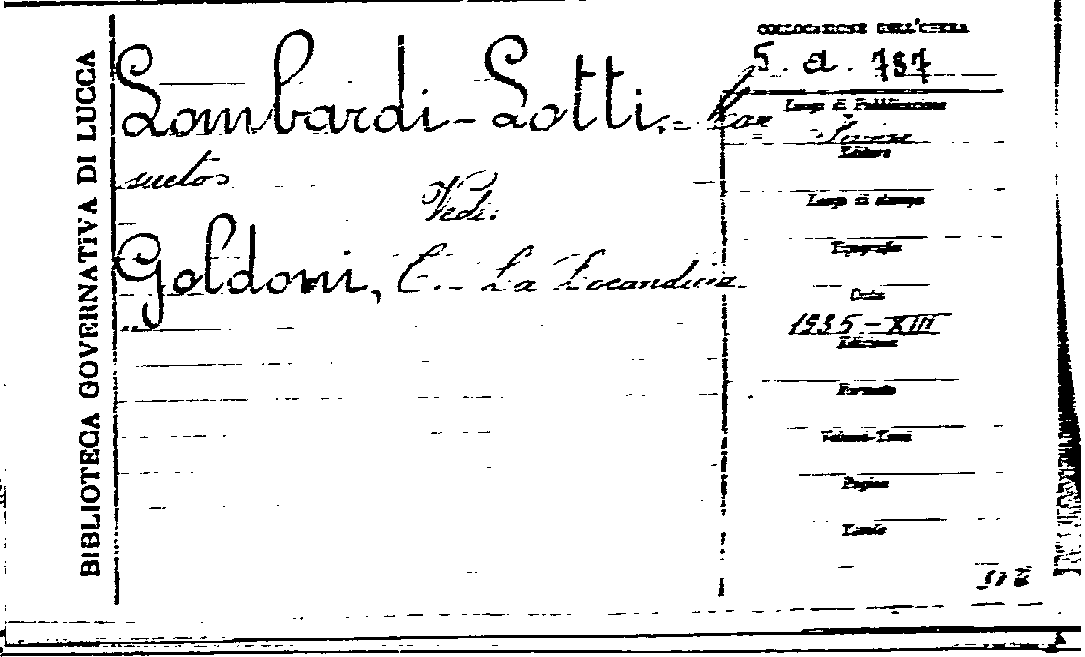 BIBLIOTECA GOVERNATIVA DI LUCCA
Lombardi-Lotti.- Man
suetos
Vedi:
Goldoni, C.- La Locandiera
COLLOCAZIONE DELL'OPERA
5. d. 787
Luogo di Pubblicazione
Editore
Luogo di stampa
Tipografia
Data
1935-XIII
Edizione
Formato
Volumi-Tomi
Pagine